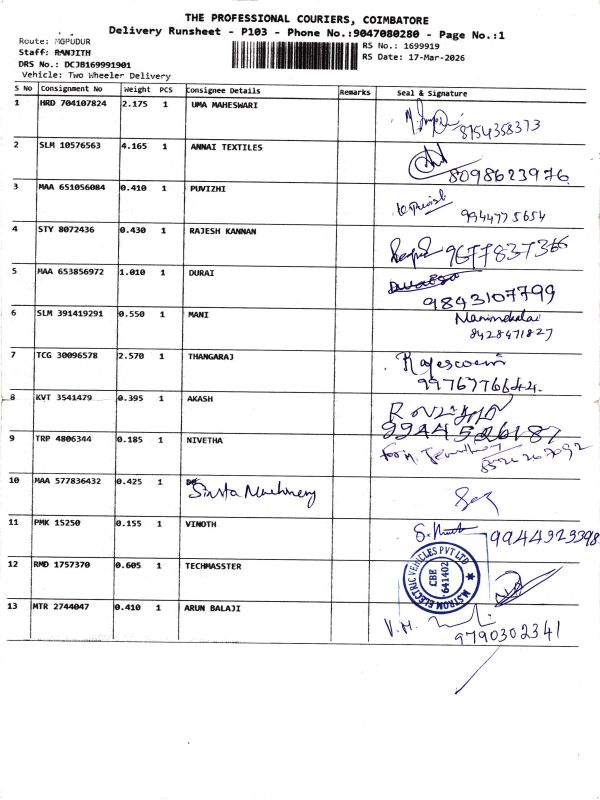 THE PROFESSIONAL COURIERS, COIMBATORE
Delivery Runsheet - P103 - Phone No.:9047080280 - Page No.:1
Route: MGPUDUR
RS No.: 1699919
Staff: RANJITH
RS Date: 17-Mar-2026
DRS No.: DCJB169991901
Vehicle: Two Wheeler Delivery
S No Consignment No Weight PCS Consignee Details Remarks Seal & Signature
1 HRD 704107824 2.175 1 UMA MAHESWARI
8754358373
2 SLM 10576563 4.165 1 ANNAI TEXTILES
8098623976
3 MAA 651056084 0.410 1 PUVIZHI
9944775654
4 STY 8072436 0.430 1 RAJESH KANNAN
5 MAA 653856972 1.010 1 DURAI
9843107799
6 SLM 391419291 0.550 1 MANI
Manimekalai
8428471827
7 TCG 30096578 2.570 1 THANGARAJ
9976776644
8 KVT 3541479 0.395 1 AKASH
9 TRP 4806344 0.185 1 NIVETHA
10 MAA 577836432 0.425 1
11 PMK 15250 0.155 1 VINOTH
9944929398
12 RMD 1757370 0.605 1 TECHMASSTER
M STROM ELECTRIC VEHICLES PVT LTD
CBE
641402
13 MTR 2744047 0.410 1 ARUN BALAJI
V.M.
9790302341